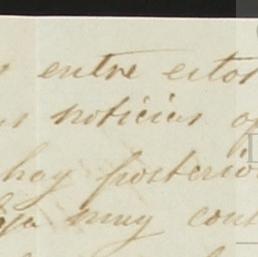 entre estos
noticias
hay posterio
muy cont